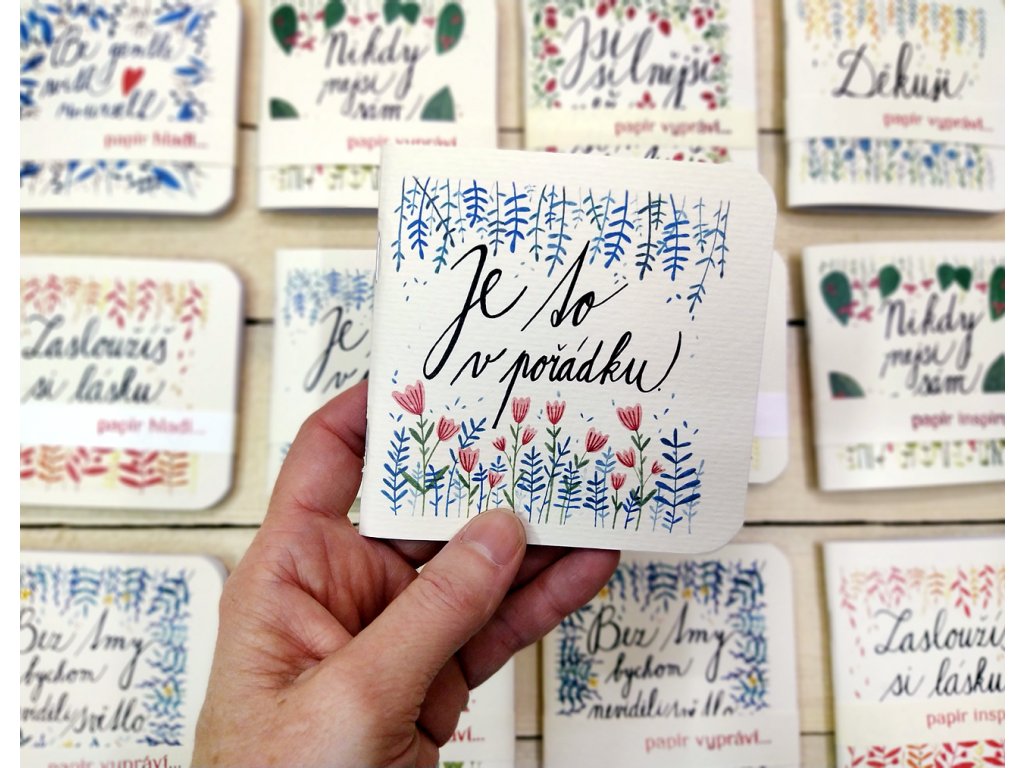 Be gentle
with
yourself
papír hladí...
Nikdy
nejsi
sám
papír vypráví...
Jsi
silnější
než
papír vypráví...
Děkuji
papír vypráví...
Je to
v pořádku!
Zasloužíš
si lásku
papír hladí...
Je
v
Nikdy
nejsi
sám
papír inspir
Bez tmy
bychom
neviděli světlo
papír vypráví...
Bez tmy
bychom
neviděli světlo
papír vypráví...
Zasloužíš
si lásku
papír insp